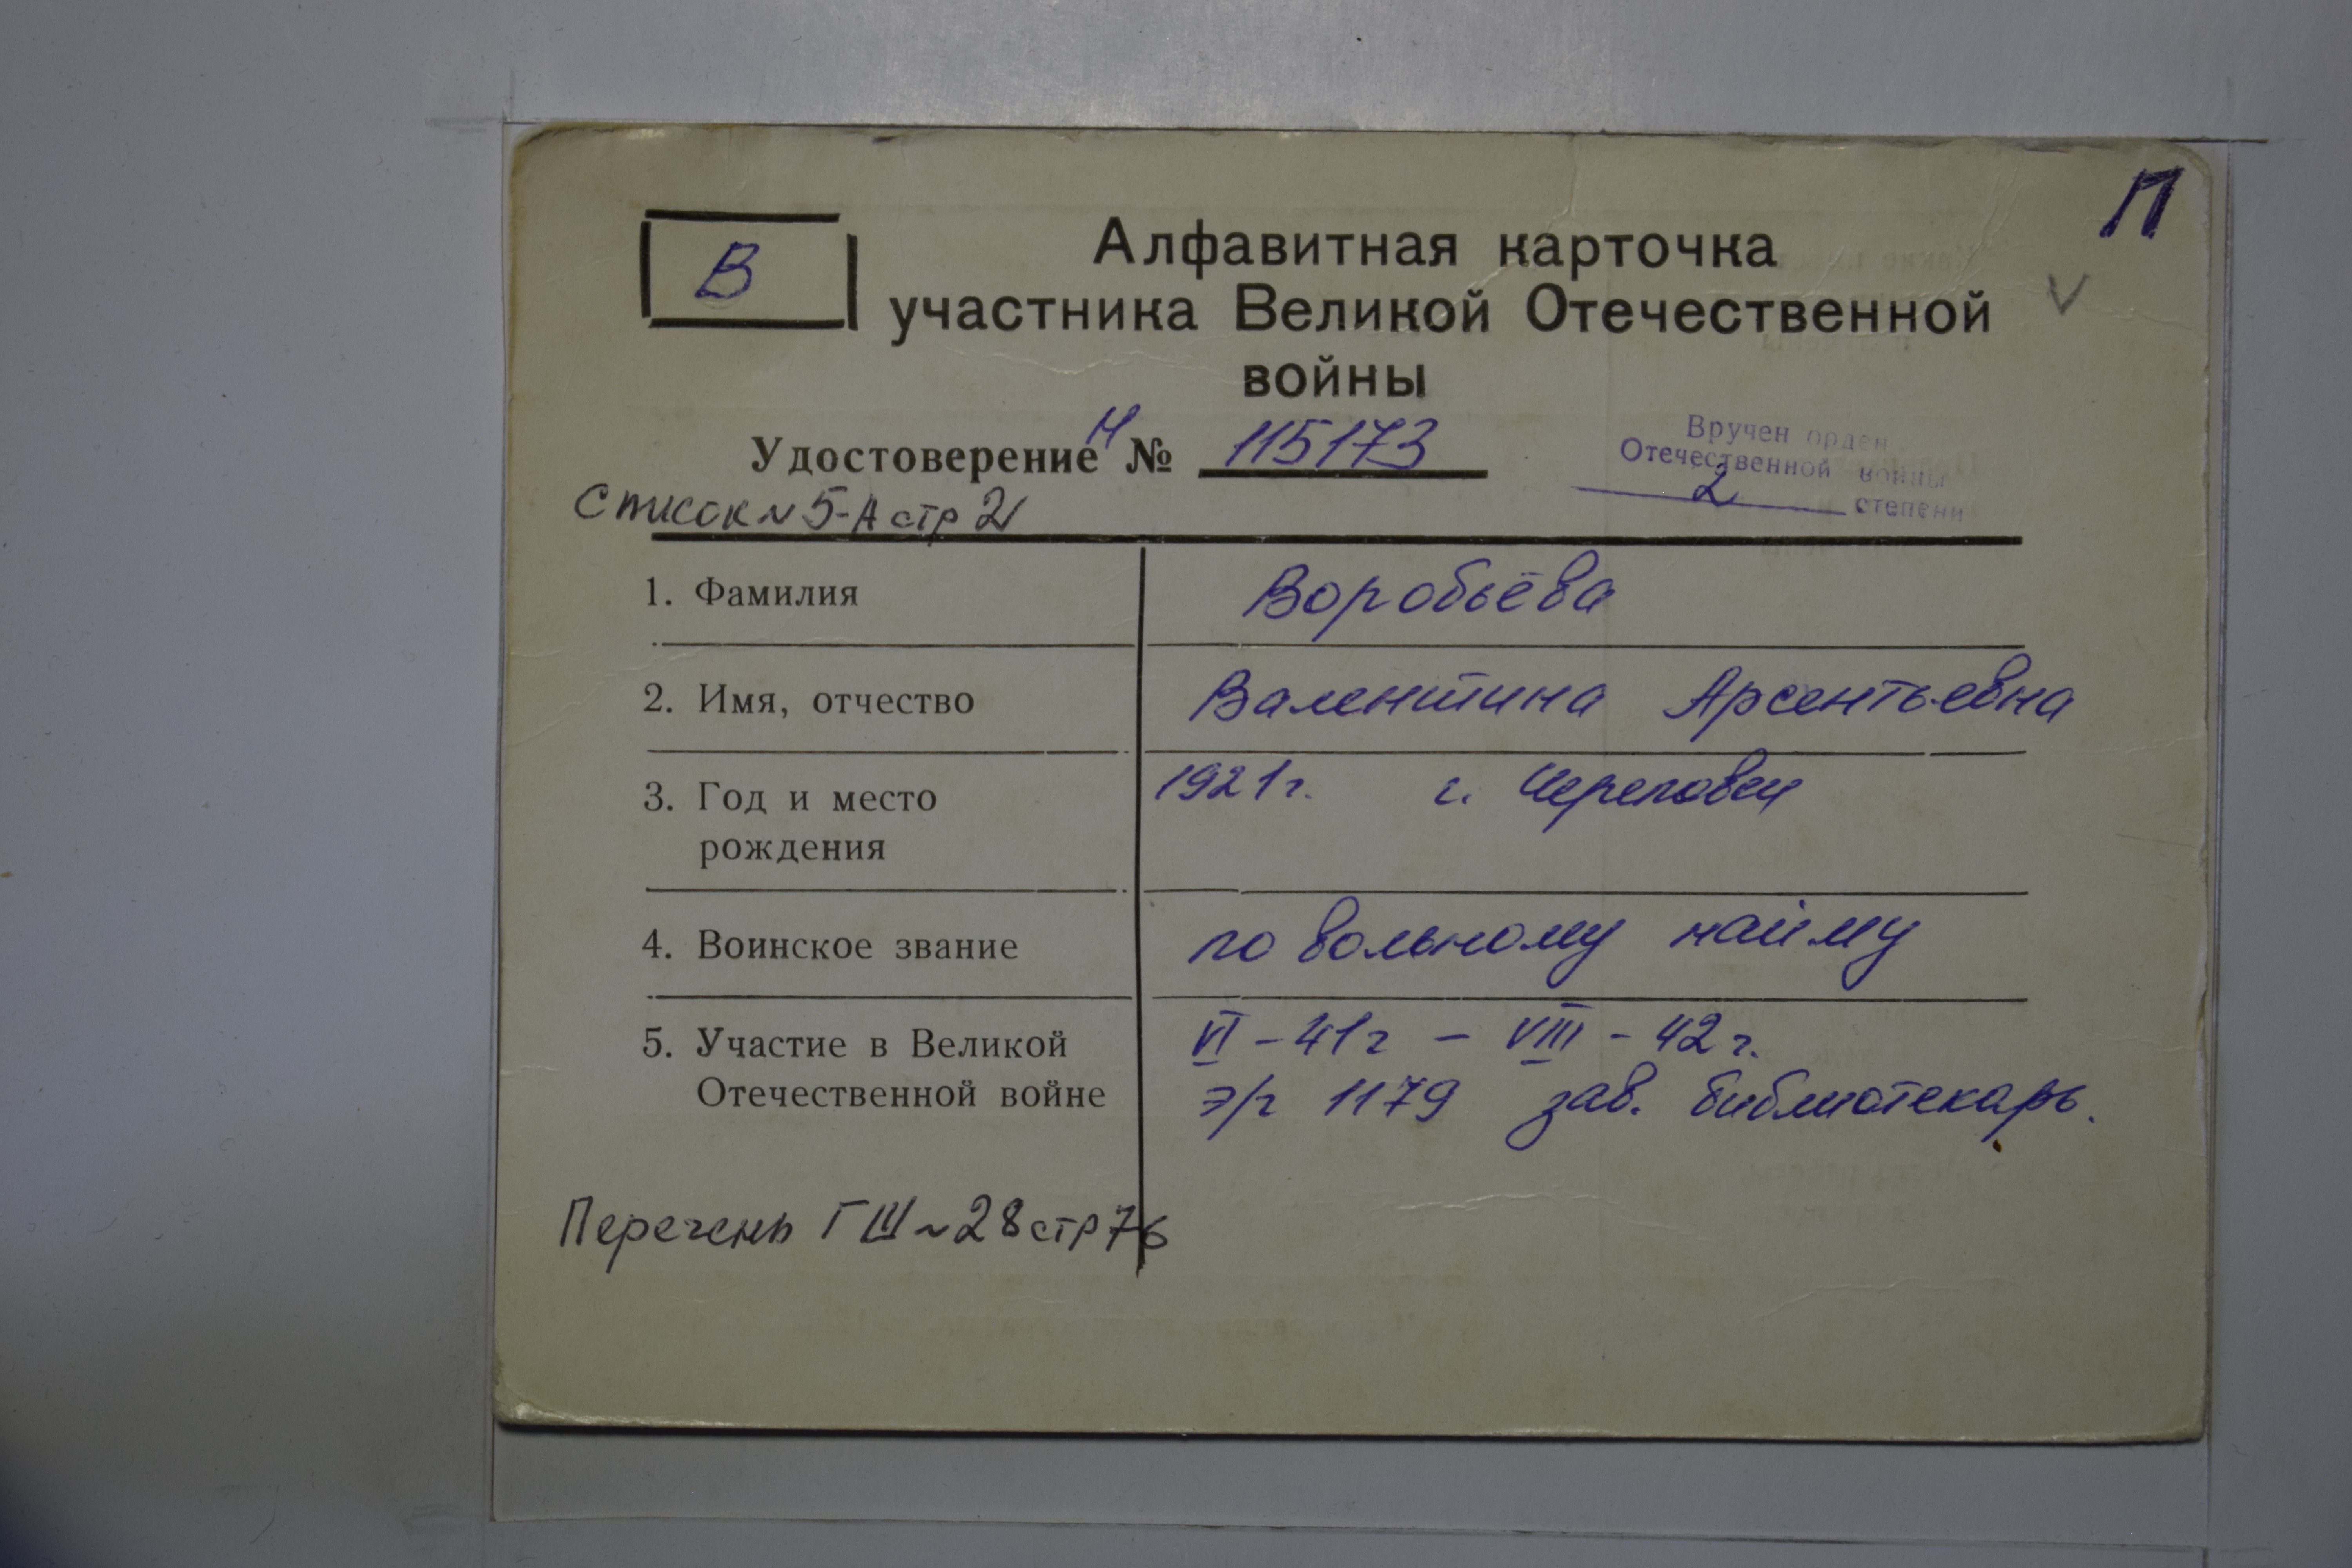 П
В
Алфавитная карточка
участника Великой Отечественной
войны
V
Удостоверение Н № 115173
Вручен орден
Отечественной войны
2 степени
Список N 5-А стр 21
1. Фамилия Воробьёва
2. Имя, отчество Валентина Арсентьевна
3. Год и место 1921г. г. Череповец
рождения
4. Воинское звание по вольному найму
5. Участие в Великой VI - 41г - VIII - 42г.
Отечественной войне э/г 1179 зав. библиотекарь.
Перечень ГШ N 28 стр 76